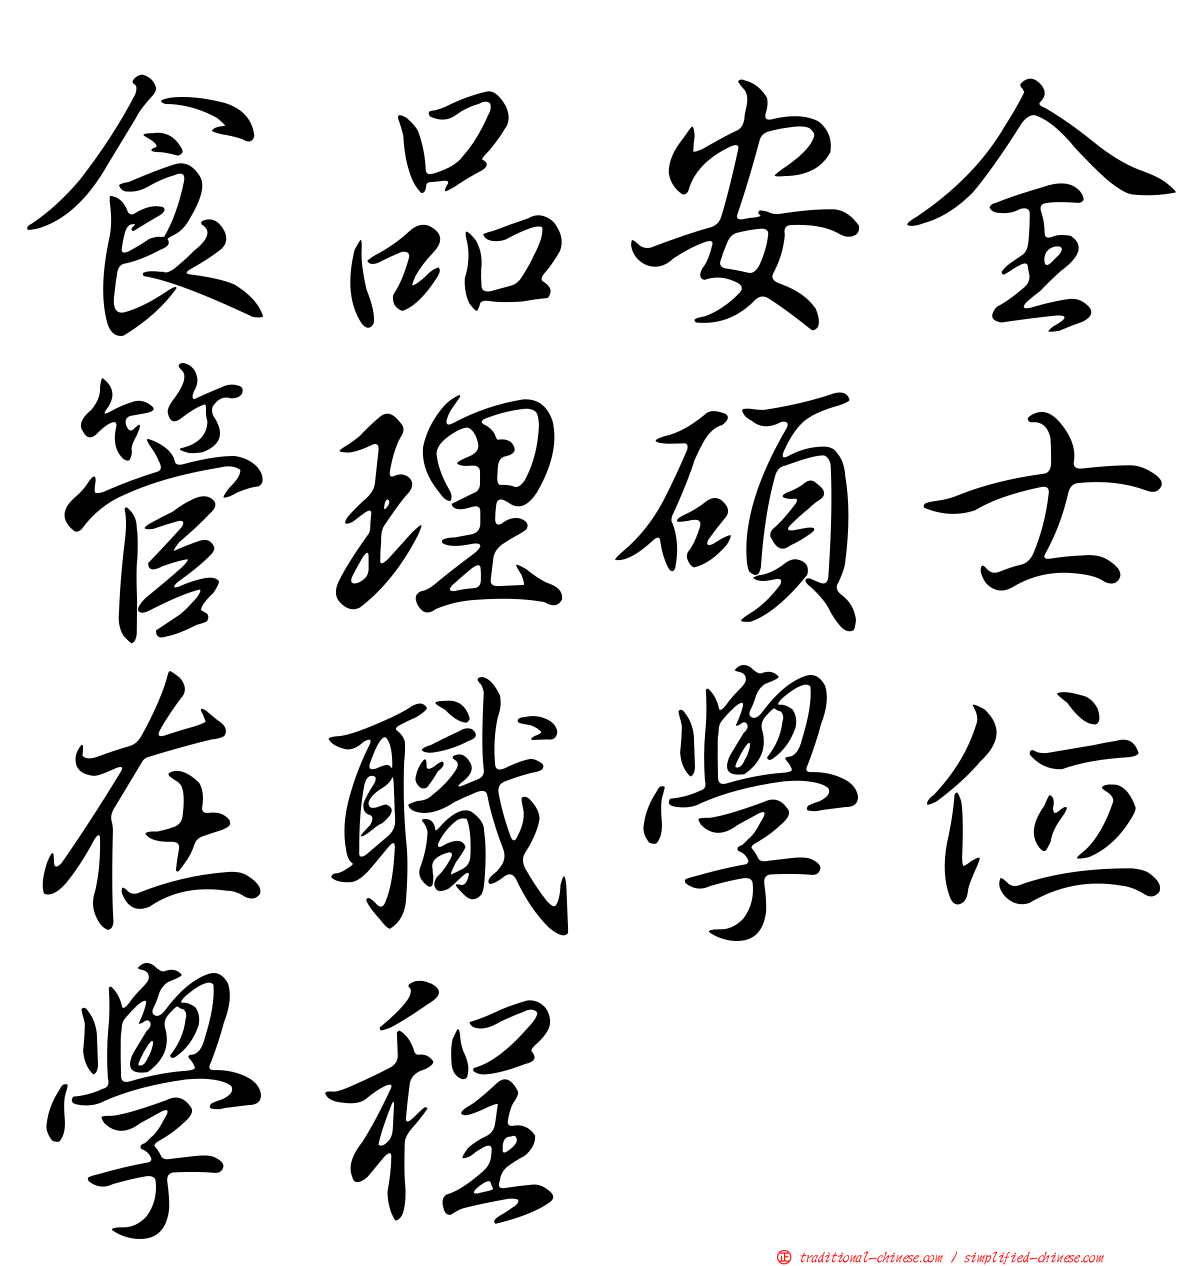 食品安全
管理碩士
在職學位
學程
正 traditional-chinese.com / simplified-chinese.com